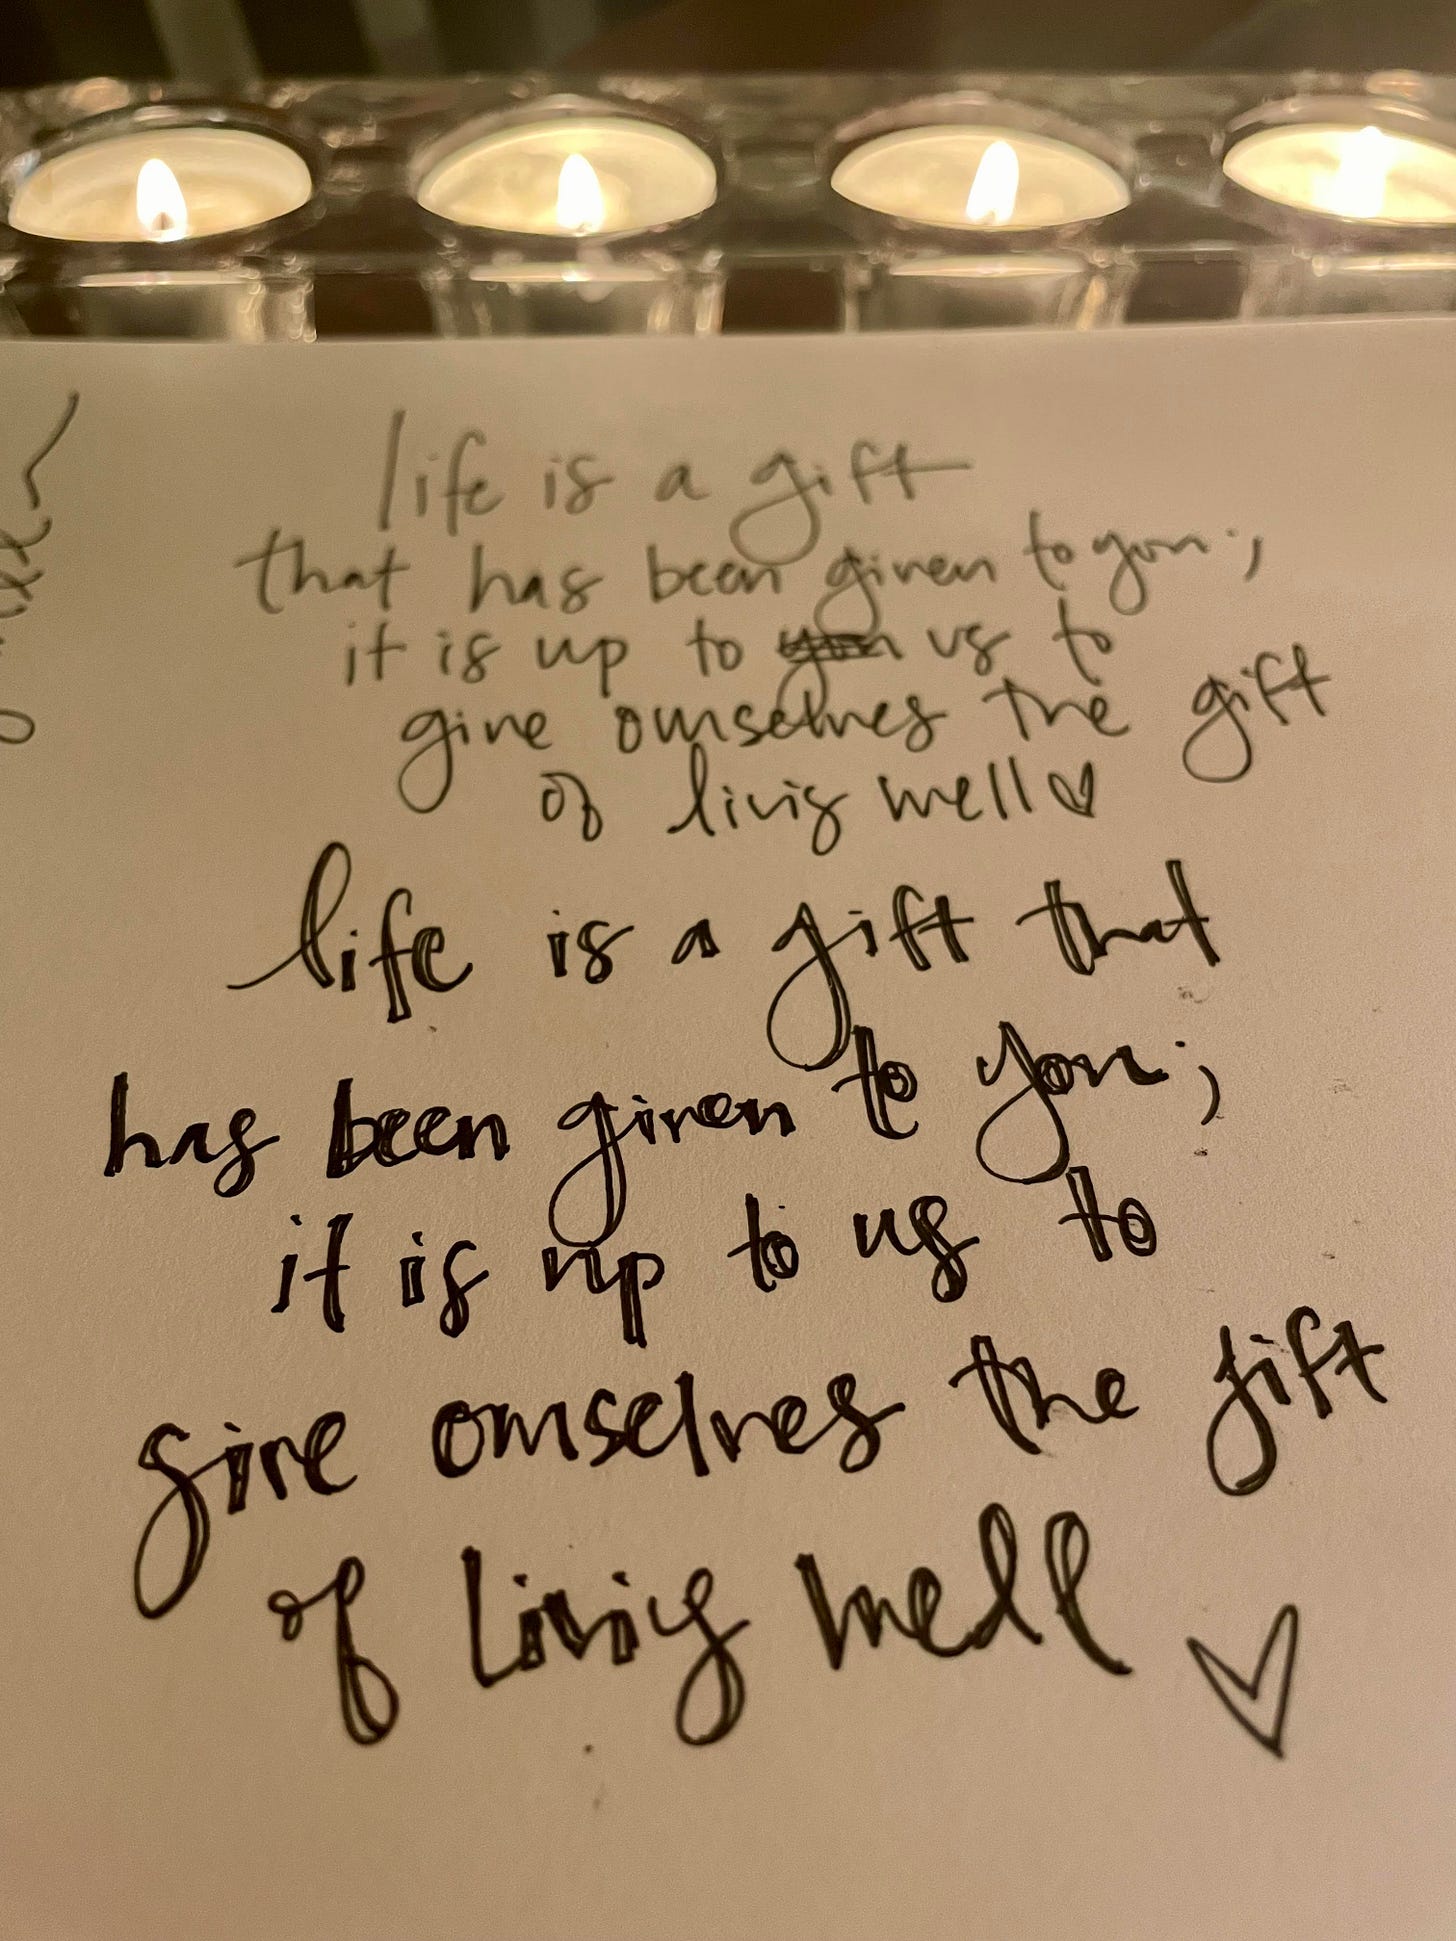 life is a gift
that has been given to you;
it is up to us to
give ourselves the gift
of living well
life is a gift that
has been given to you;
it is up to us to
give ourselves the gift
of living well